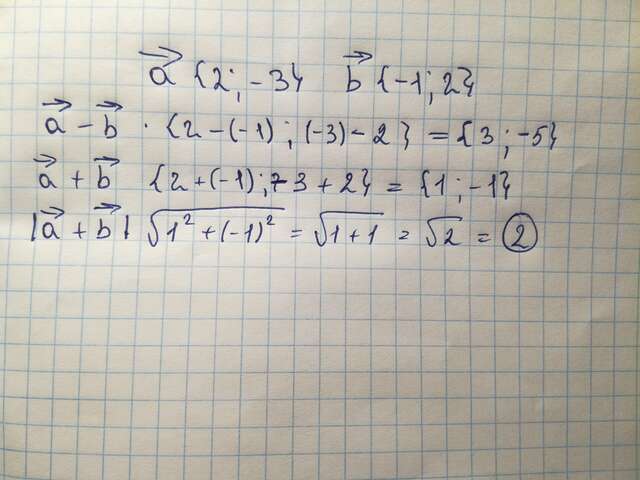 a⃗ {2; -3} b⃗ {-1; 2}
a⃗ - b⃗ · {2-(-1); (-3)-2} = {3; -5}
a⃗ + b⃗ {2+(-1); -3+2} = {1; -1}
|a⃗ + b⃗| √(1²+(-1)²) = √(1+1) = √2 = 2